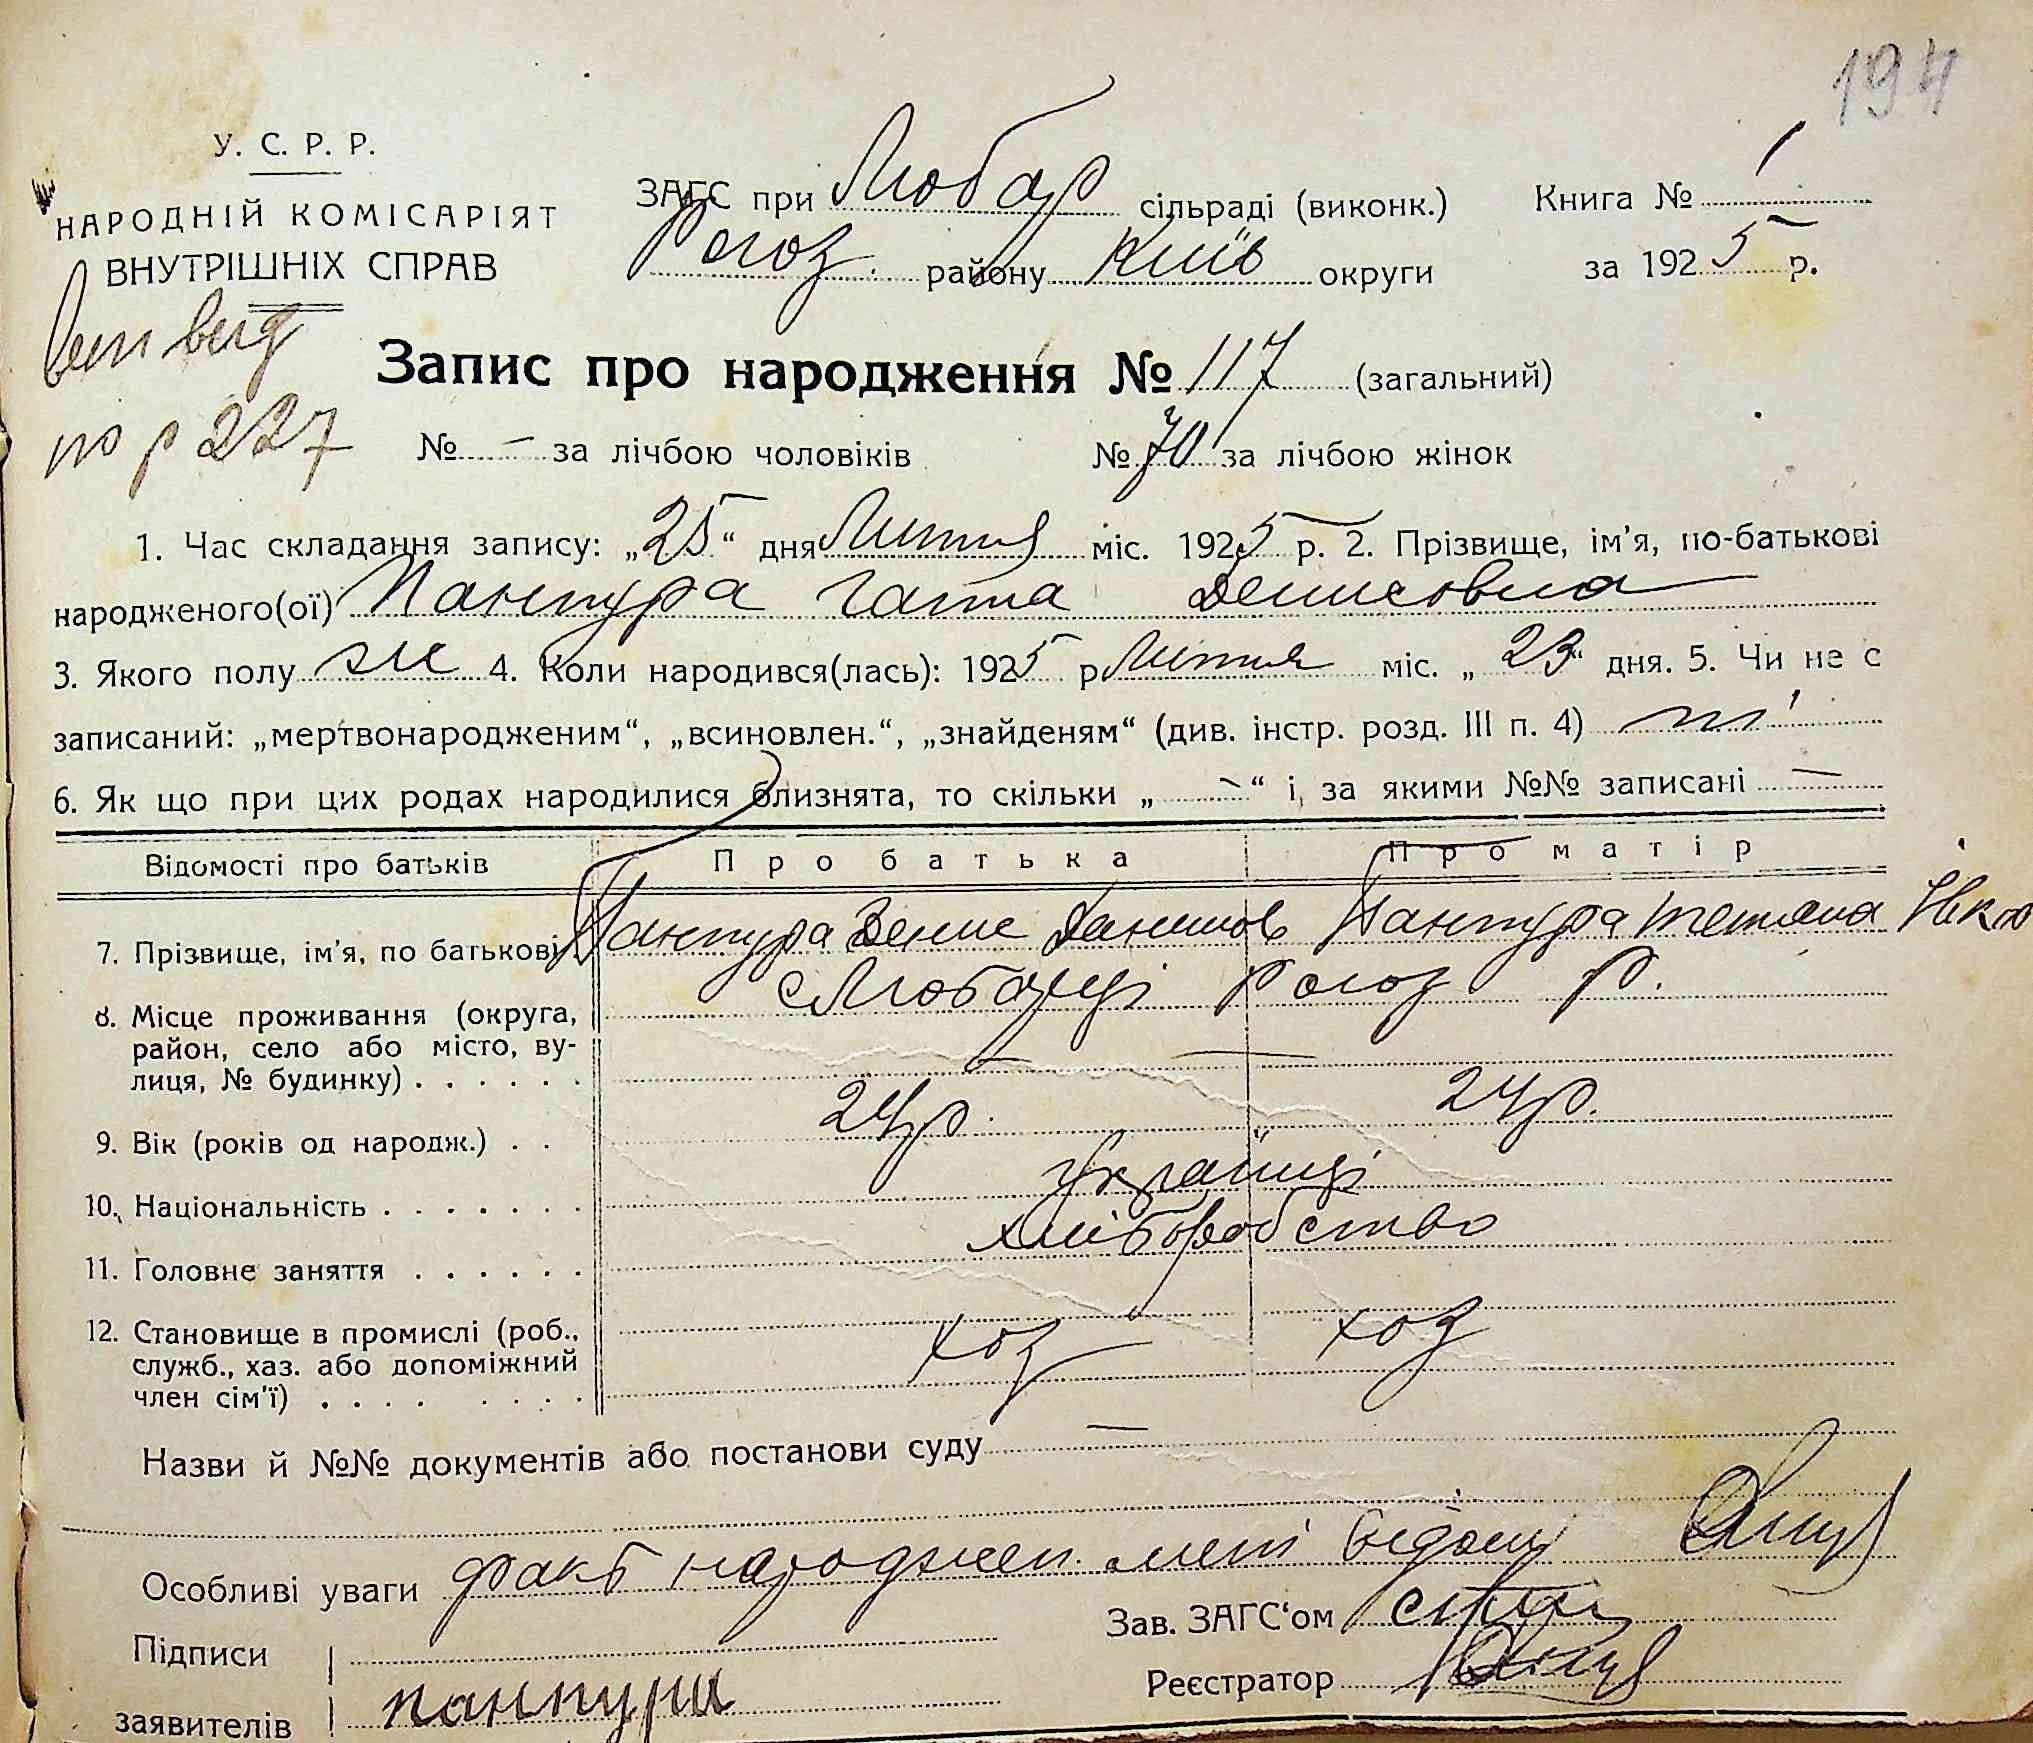 194
У. С. Р. Р.
НАРОДНІЙ КОМІСАРІЯТ
ВНУТРІШНІХ СПРАВ
ЗАГС при Любар сільраді (виконк.)
Рогоз. району Київ округи
Книга № 1
за 1925 р.
Запис про народження № 117 (загальний)
по р 227
№ – за лічбою чоловіків № 70 за лічбою жінок
1. Час складання запису: „25“ дня Липня міс. 1925 р. 2. Прізвище, ім'я, по-батькові
народженого(ої) Пантура Ганна Денисовна
3. Якого полу ж 4. Коли народився(лась): 1925 р Липня міс. „23“ дня. 5. Чи не є
записаний: „мертвонародженим“, „всиновлен.“, „знайденям“ (див. інстр. розд. III п. 4) ні
6. Як що при цих родах народилися близнята, то скільки „–“ і, за якими №№ записані –
Відомості про батьків Про батька Про матір
7. Прізвище, ім'я, по батькові Пантура Денис Данилов Пантура Тетяна
8. Місце проживання (округа, с Любарці Рогоз Р.
район, село або місто, ву-
лиця, № будинку) . . . . . . — —
9. Вік (років од народж.) . . 24 р. 24 р.
10. Національність . . . . . . . Українці
11. Головне заняття . . . . . . хліборобство
12. Становище в промислі (роб.,
служб., хаз. або допоміжний хоз хоз
член сім'ї) . . . . . . . .
Назви й №№ документів або постанови суду —
Особливі уваги факт народжен. мені відом
Зав. ЗАГС'ом
Підписи
Реєстратор
заявителів пантури